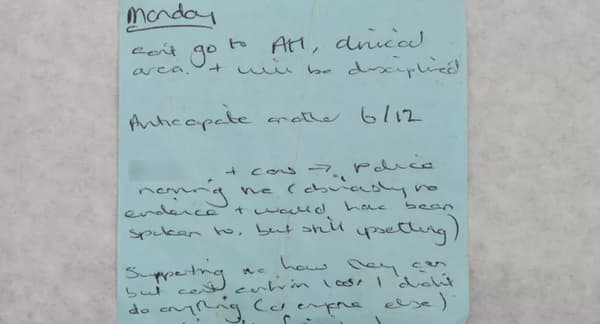 Monday
can't go to AH, clinical
area. + will be disciplined
Anticipate another 6/12
+ cons → police
naming me (obviously no
evidence + would have been
spoken to, but still upsetting)
Supporting me how they can
but can't confirm I didn't
do anything (or anyone else)